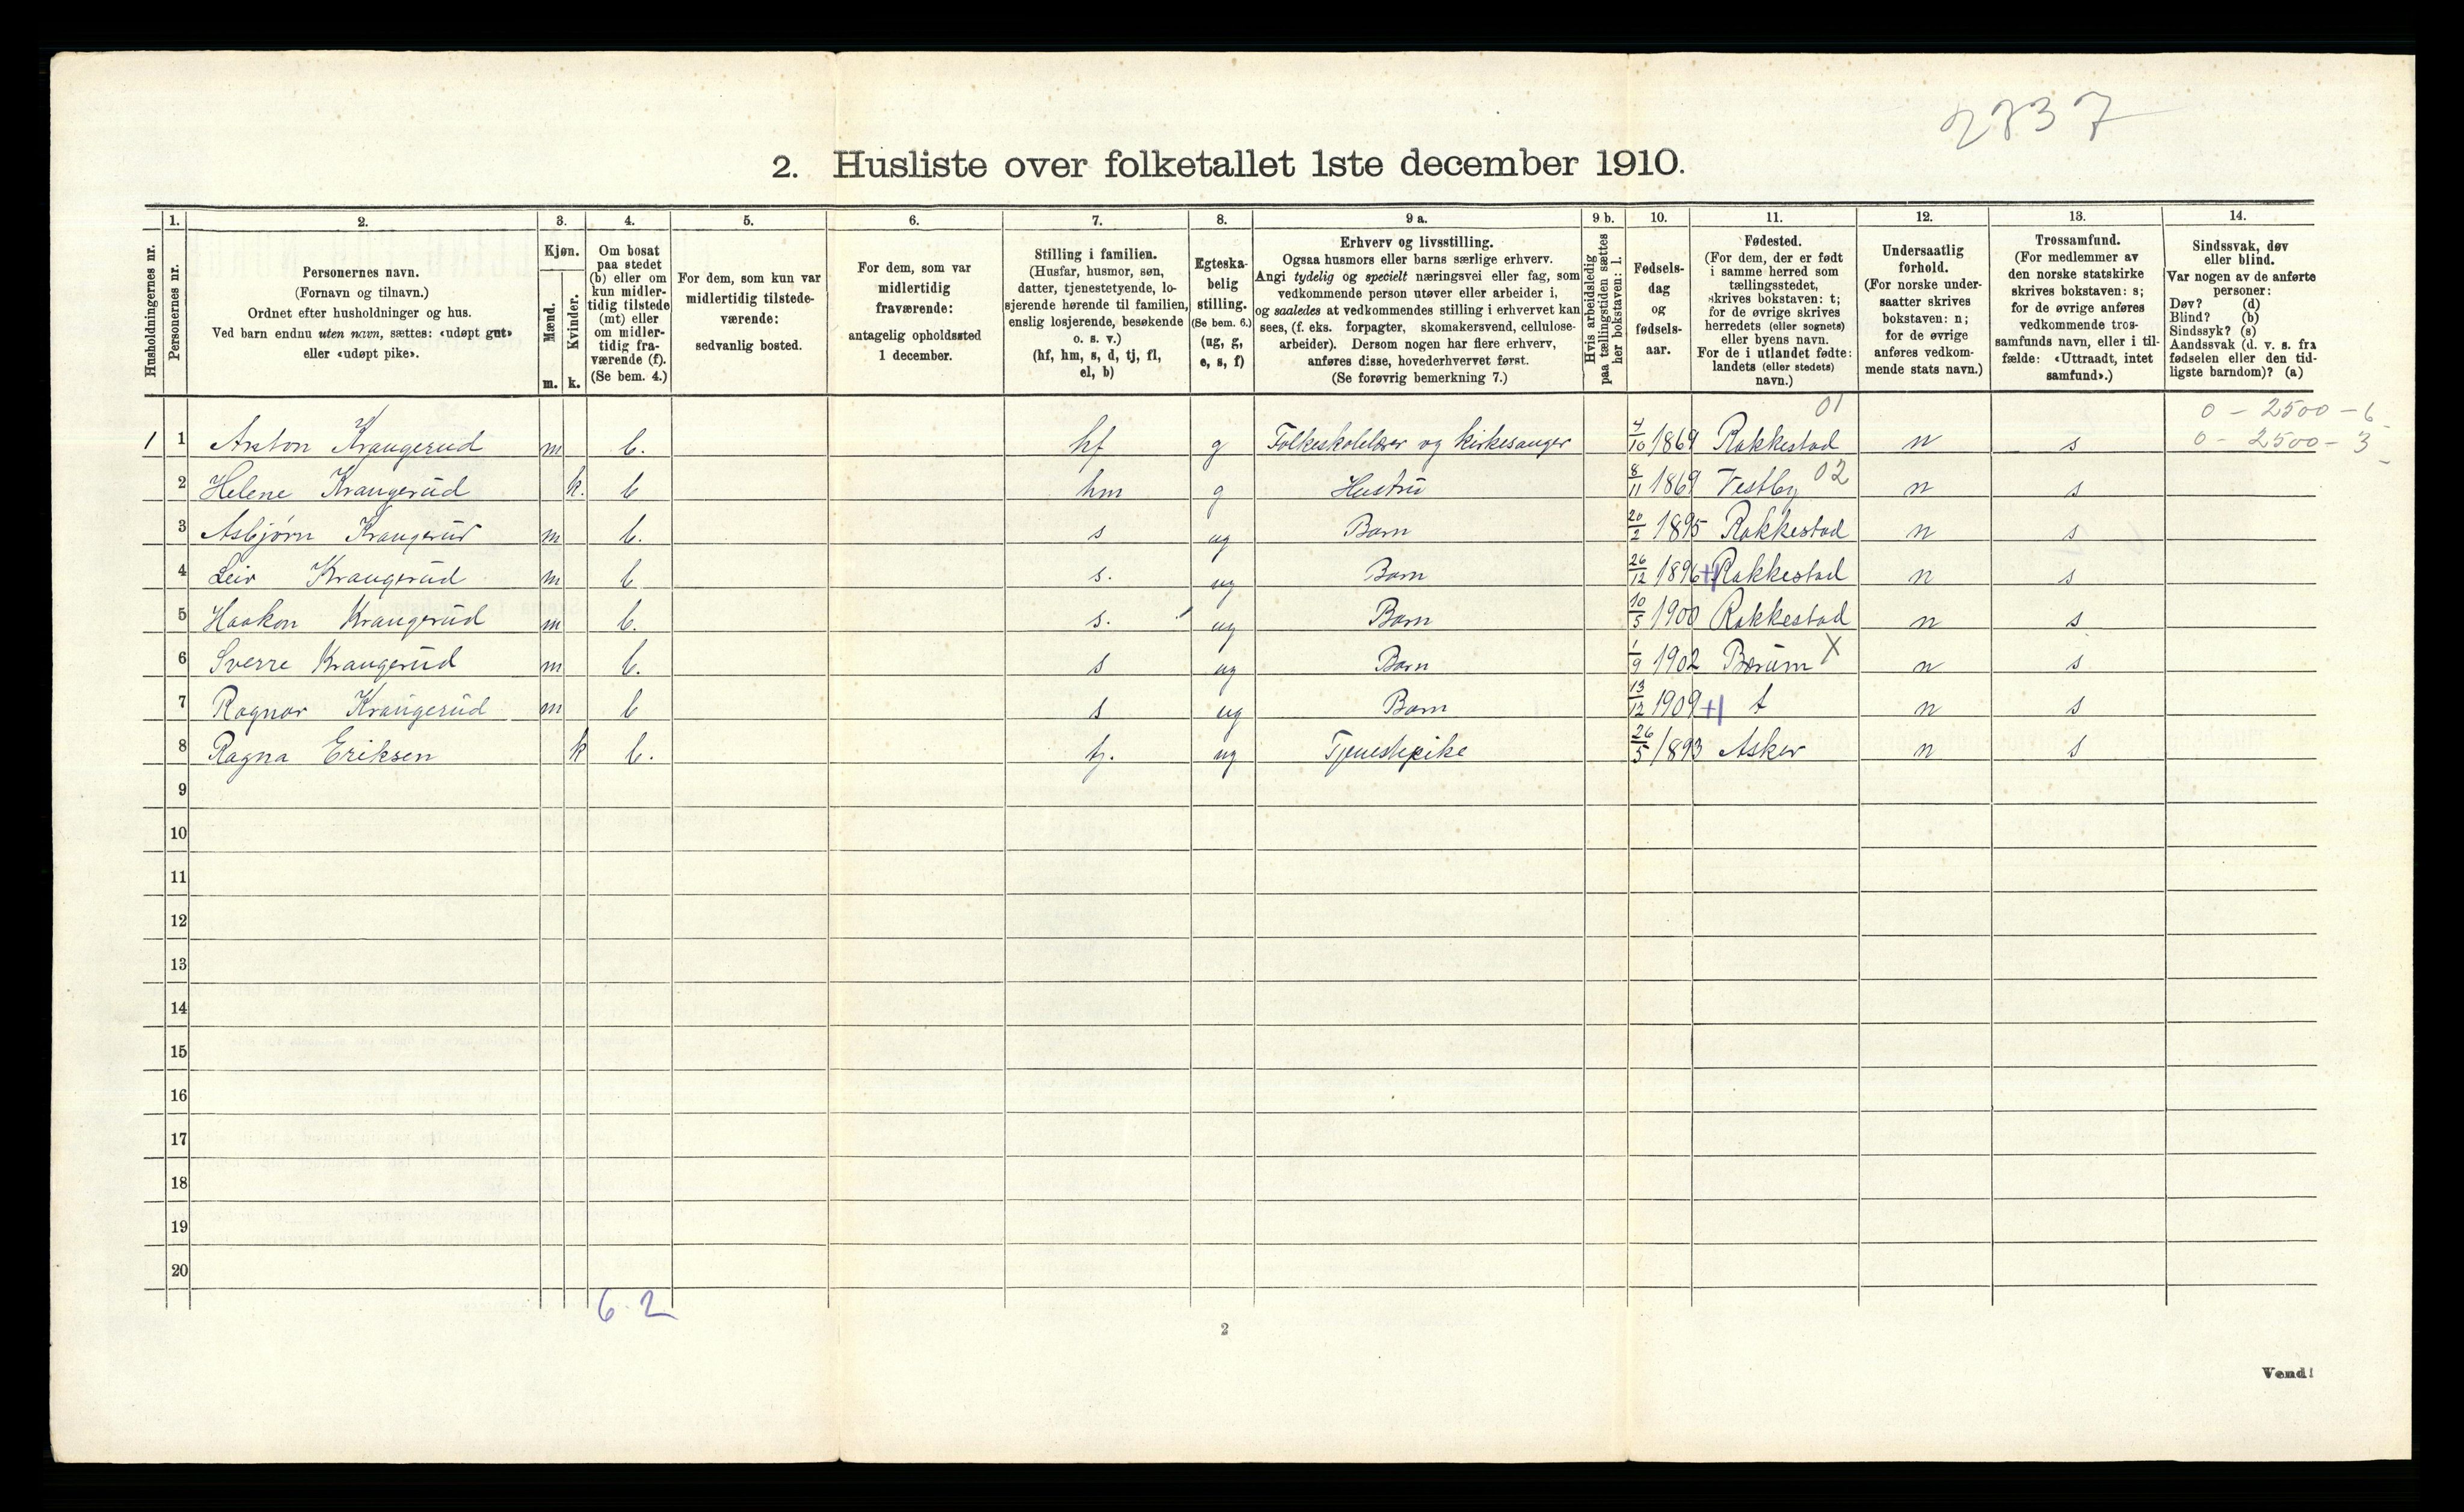 2837
2. Husliste over folketallet 1ste december 1910.
Husholdningernes nr.
1.
Personernes nr.
2.
Personernes navn.
(Fornavn og tilnavn.)
Ordnet efter husholdninger og hus.
Ved barn endnu uten navn, sættes: «udøpt gut»
eller «udøpt pike».
3.
Kjøn.
Mænd.
Kvinder.
m. k.
4.
Om bosat
paa stedet
(b) eller om
kun midler-
tidig tilstede
(mt) eller
om midler-
tidig fra-
værende (f).
(Se bem. 4.)
5.
For dem, som kun var
midlertidig tilstede-
værende:
sedvanlig bosted.
6.
For dem, som var
midlertidig
fraværende:
antagelig opholdssted
1 december.
7.
Stilling i familien.
(Husfar, husmor, søn,
datter, tjenestetyende, lo-
sjerende hørende til familien,
enslig losjerende, besøkende
o. s. v.)
(hf, hm, s, d, tj, fl,
el, b)
8.
Egteska-
belig
stilling.
(Se bem. 6.)
(ug, g,
e, s, f)
9 a.
Erhverv og livsstilling.
Ogsaa husmors eller barns særlige erhverv.
Angi tydelig og specielt næringsvei eller fag, som
vedkommende person utøver eller arbeider i,
og saaledes at vedkommendes stilling i erhvervet kan
sees, (f. eks. forpagter, skomakersvend, cellulose-
arbeider). Dersom nogen har flere erhverv,
anføres disse, hovederhvervet først.
(Se forøvrig bemerkning 7.)
9 b.
Hvis arbeidsledig
paa tællingstiden sættes
her bokstaven: l.
10.
Fødsels-
dag
og
fødsels-
aar.
11.
Fødested.
(For dem, der er født
i samme herred som
tællingsstedet,
skrives bokstaven: t;
for de øvrige skrives
herredets (eller sognets)
eller byens navn.
For de i utlandet fødte:
landets (eller stedets)
navn.)
12.
Undersaatlig
forhold.
(For norske under-
saatter skrives
bokstaven: n;
for de øvrige
anføres vedkom-
mende stats navn.)
13.
Trossamfund.
(For medlemmer av
den norske statskirke
skrives bokstaven: s;
for de øvrige anføres
vedkommende tros-
samfunds navn, eller i til-
fælde: «Uttraadt, intet
samfund».)
14.
Sindssvak, døv
eller blind.
Var nogen av de anførte
personer:
Døv? (d)
Blind? (b)
Sindssyk? (s)
Aandssvak (d. v. s. fra
fødselen eller den tid-
ligste barndom)? (a)
01 0 - 2500 - 6
1 1 Anton Krangerud m b. hf g Folkeskolelærer og kirkesanger 4/10 1869 Rakkestad n s 0 - 2500 - 3
2 Helene Krangerud k. b hm g Hustru 8/11 1869 Vestby 02 n s
3 Asbjørn Krangerud m b. s ug Barn 20/2 1895 Rakkestad n s
4 Leiv Krangerud m b s. ug Barn 26/12 1896 Rakkestad n s
5 Haakon Krangerud m b. s. ug Barn 10/5 1900 Rakkestad n s
6 Sverre Krangerud m b. s ug Barn 1/9 1902 Bærum X n s
7 Ragnar Krangerud m b s ug Barn 13/12 1909 t n s
8 Ragna Eriksen k b. tj. ug Tjenestepike 26/5 1893 Asker n s
9
10
11
12
13
14
15
16
17
18
19
20
6-2
2
Vend!